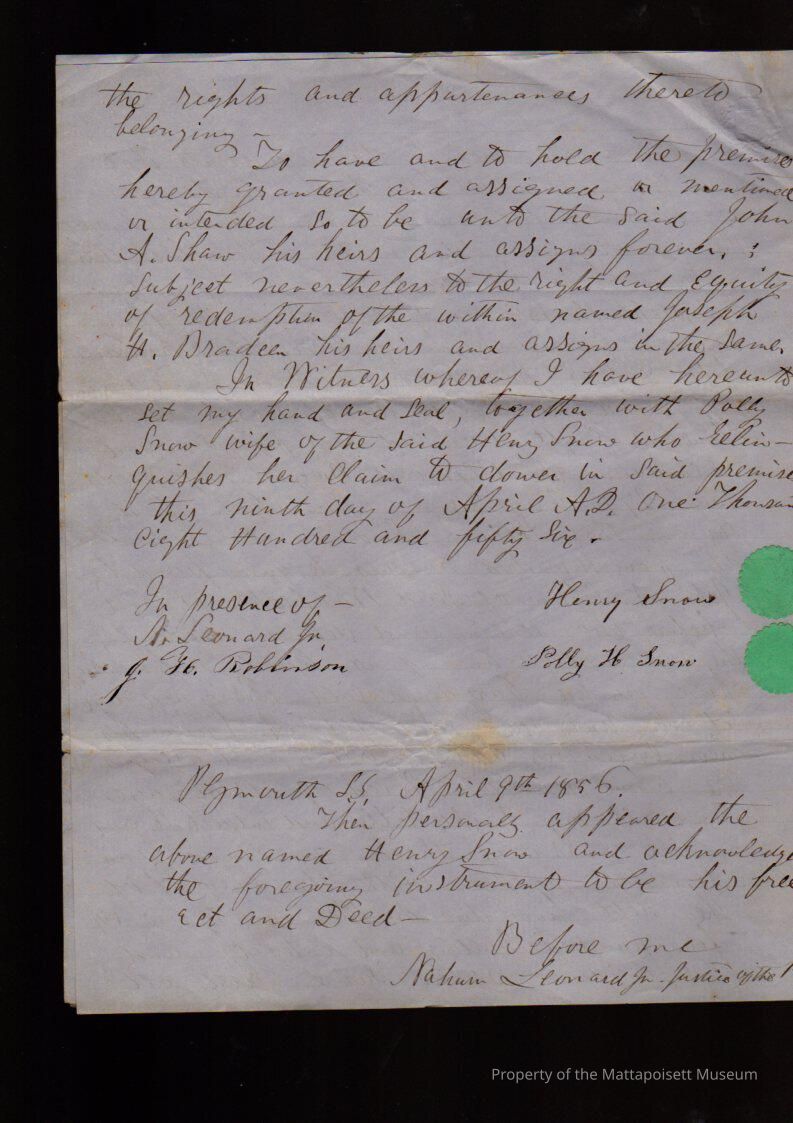 the rights and appurtenances thereto
belonging –
To have and to hold the premises
hereby granted and assigned or mentioned
or intended so to be unto the said John
A. Shaw his heirs and assigns forever, ;
Subject nevertheless to the right and Equity
of redemption of the within named Joseph
H. Bradeen his heirs and assigns in the same.
In Witness whereof I have hereunto
set my hand and seal, together with Polly
Snow wife of the said Henry Snow who relin-
quishes her Claim to dower in Said premise
this ninth day of April A.D. One Thousan
eight Hundred and fifty six.
In presence of –
N. Leonard Jr
J. H. Robinson
Henry Snow
Polly H Snow
Plymouth SS, April 9th 1856.
Then personally appeared the
above named Henry Snow and acknowledge
the foregoing instrument to be his free
act and Deed –
Before me
Nahum Leonard Jr. Justice of the
Property of the Mattapoisett Museum